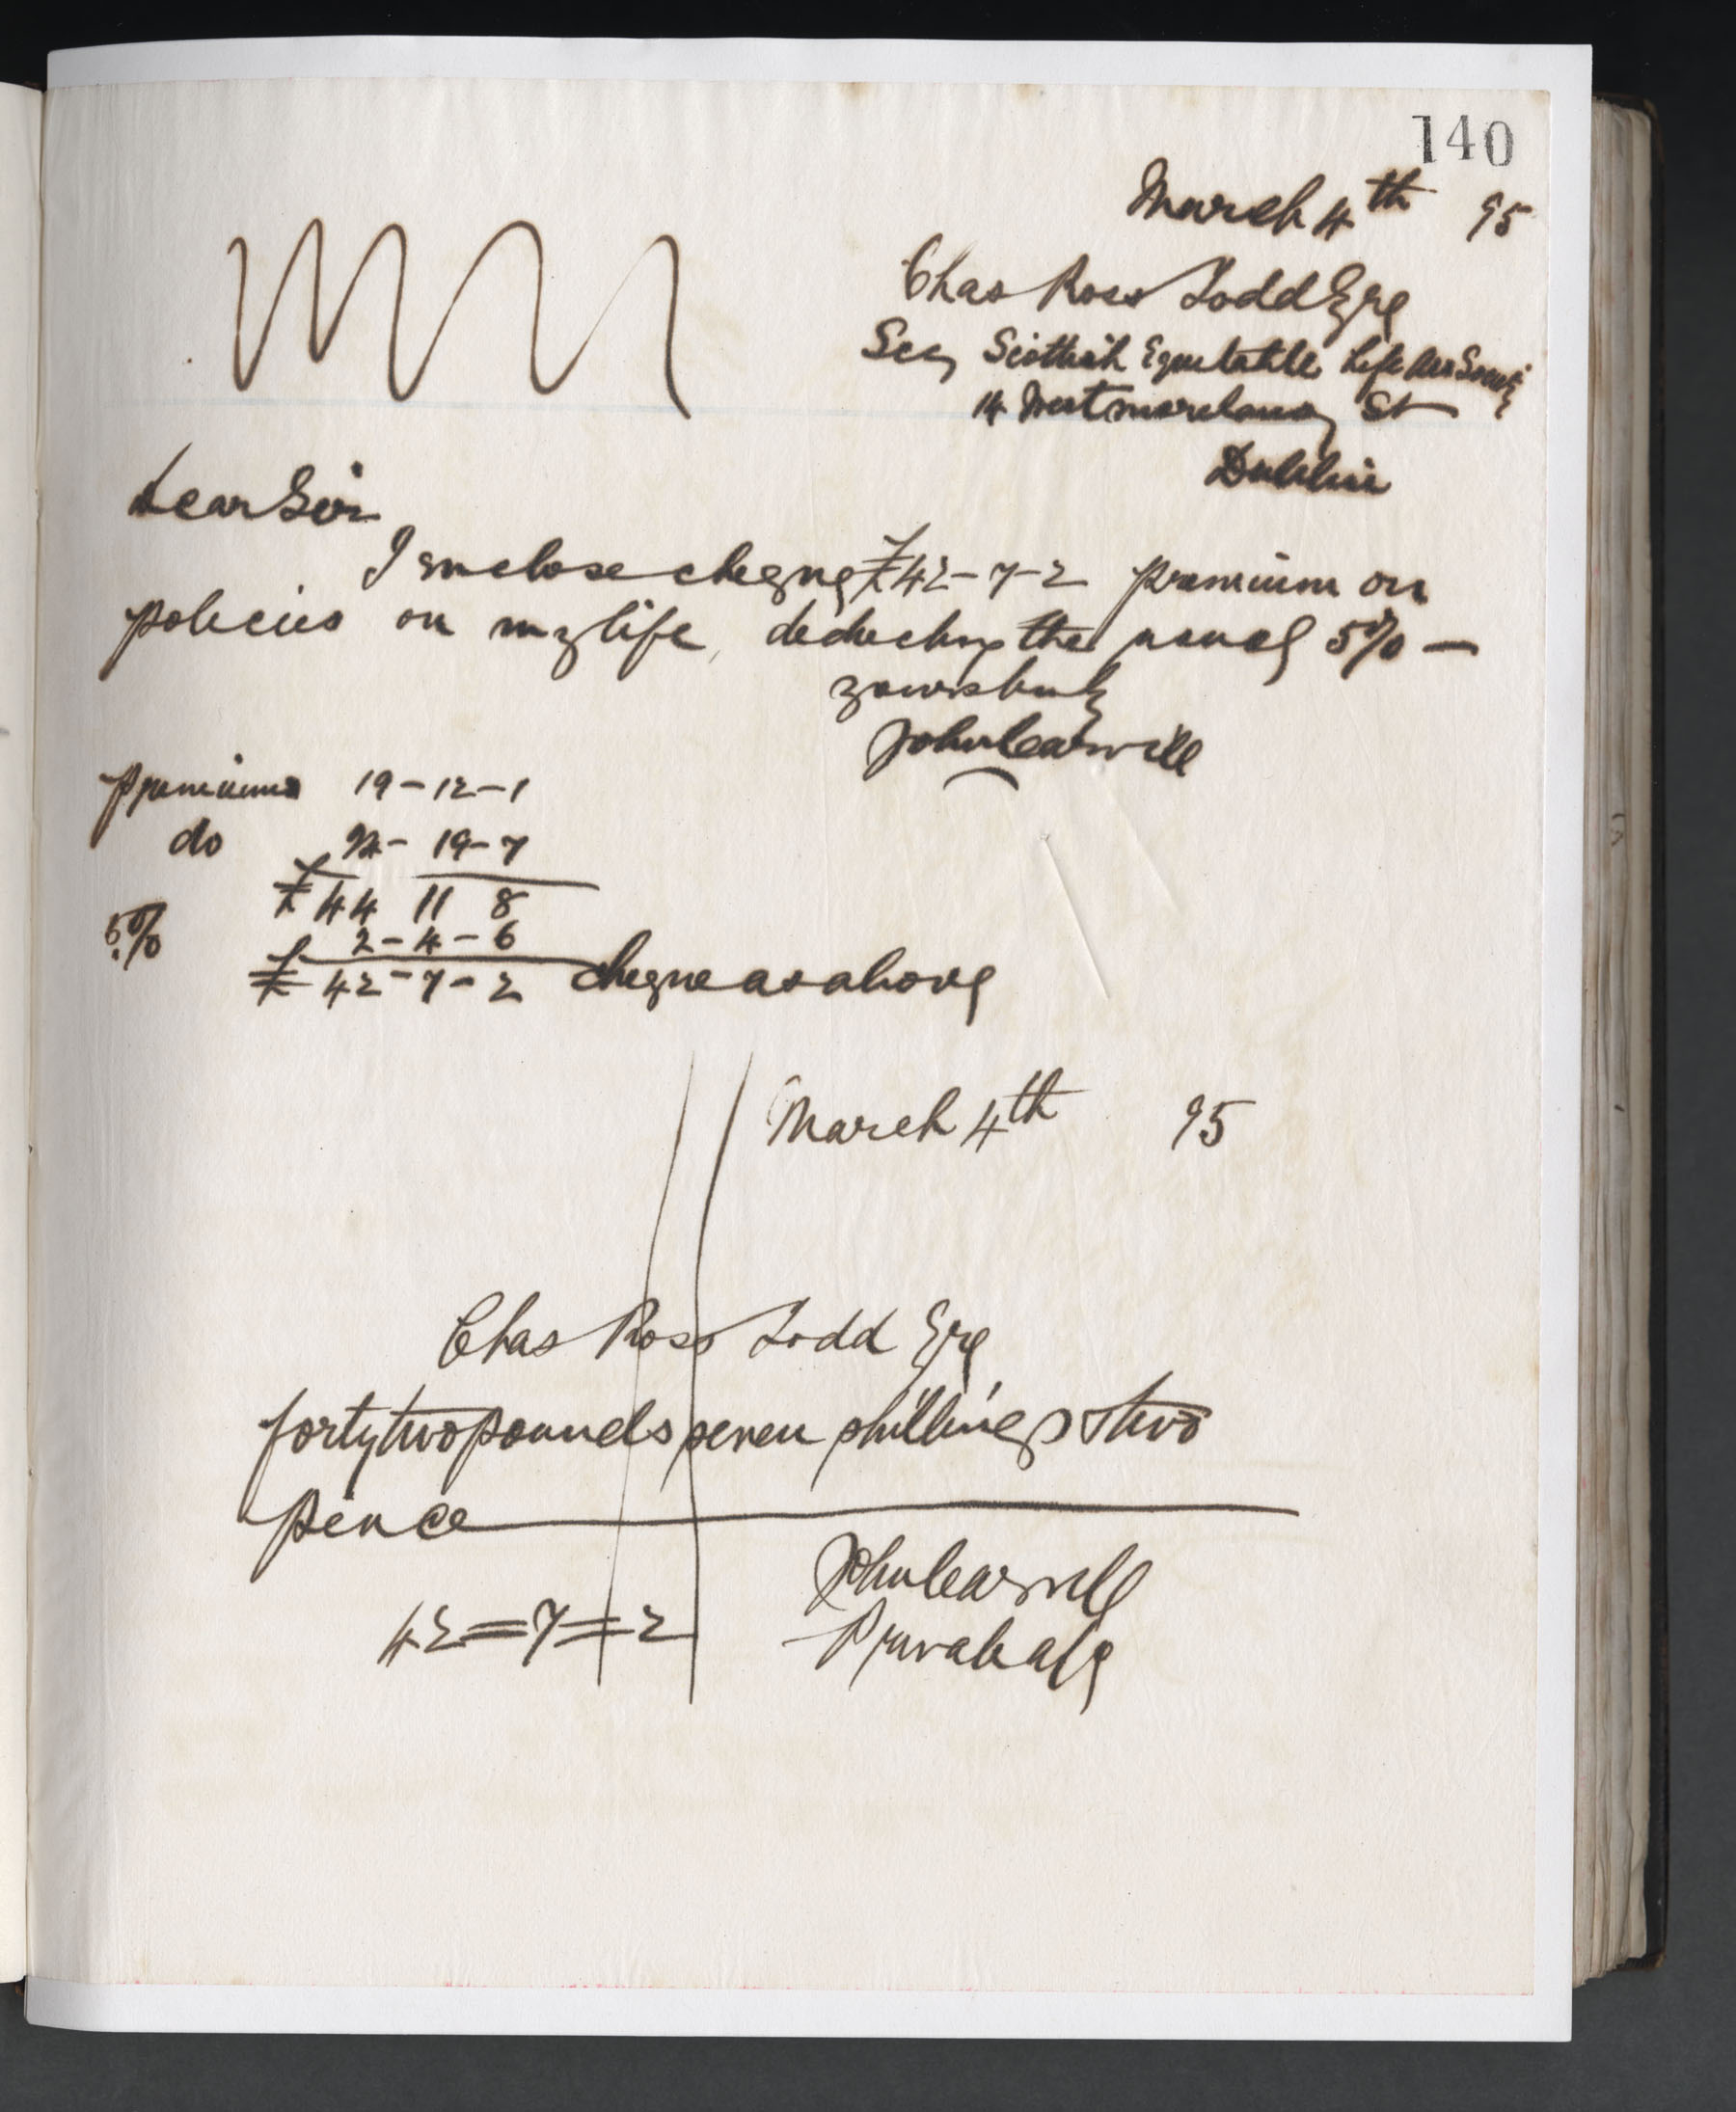 140
March 4th 95
Chas Ross Todd Esqe
Secy Scottish Equitable Life Ass Society
14 Westmoreland St
Dublin
Dear Sir
I enclose cheque £42-7-2 premium on
policies on my life, deducting the usual 5% —
yours truly
John Carvill
Premiums 19-12-1
do 24-19-7
£44 11 8
5% 2-4-6
£42-7-2 cheque as above
March 4th 95
Chas Ross Todd Esqe
forty two pounds seven shillings & two
pence
42=7=2 John Carvill
Private a/c